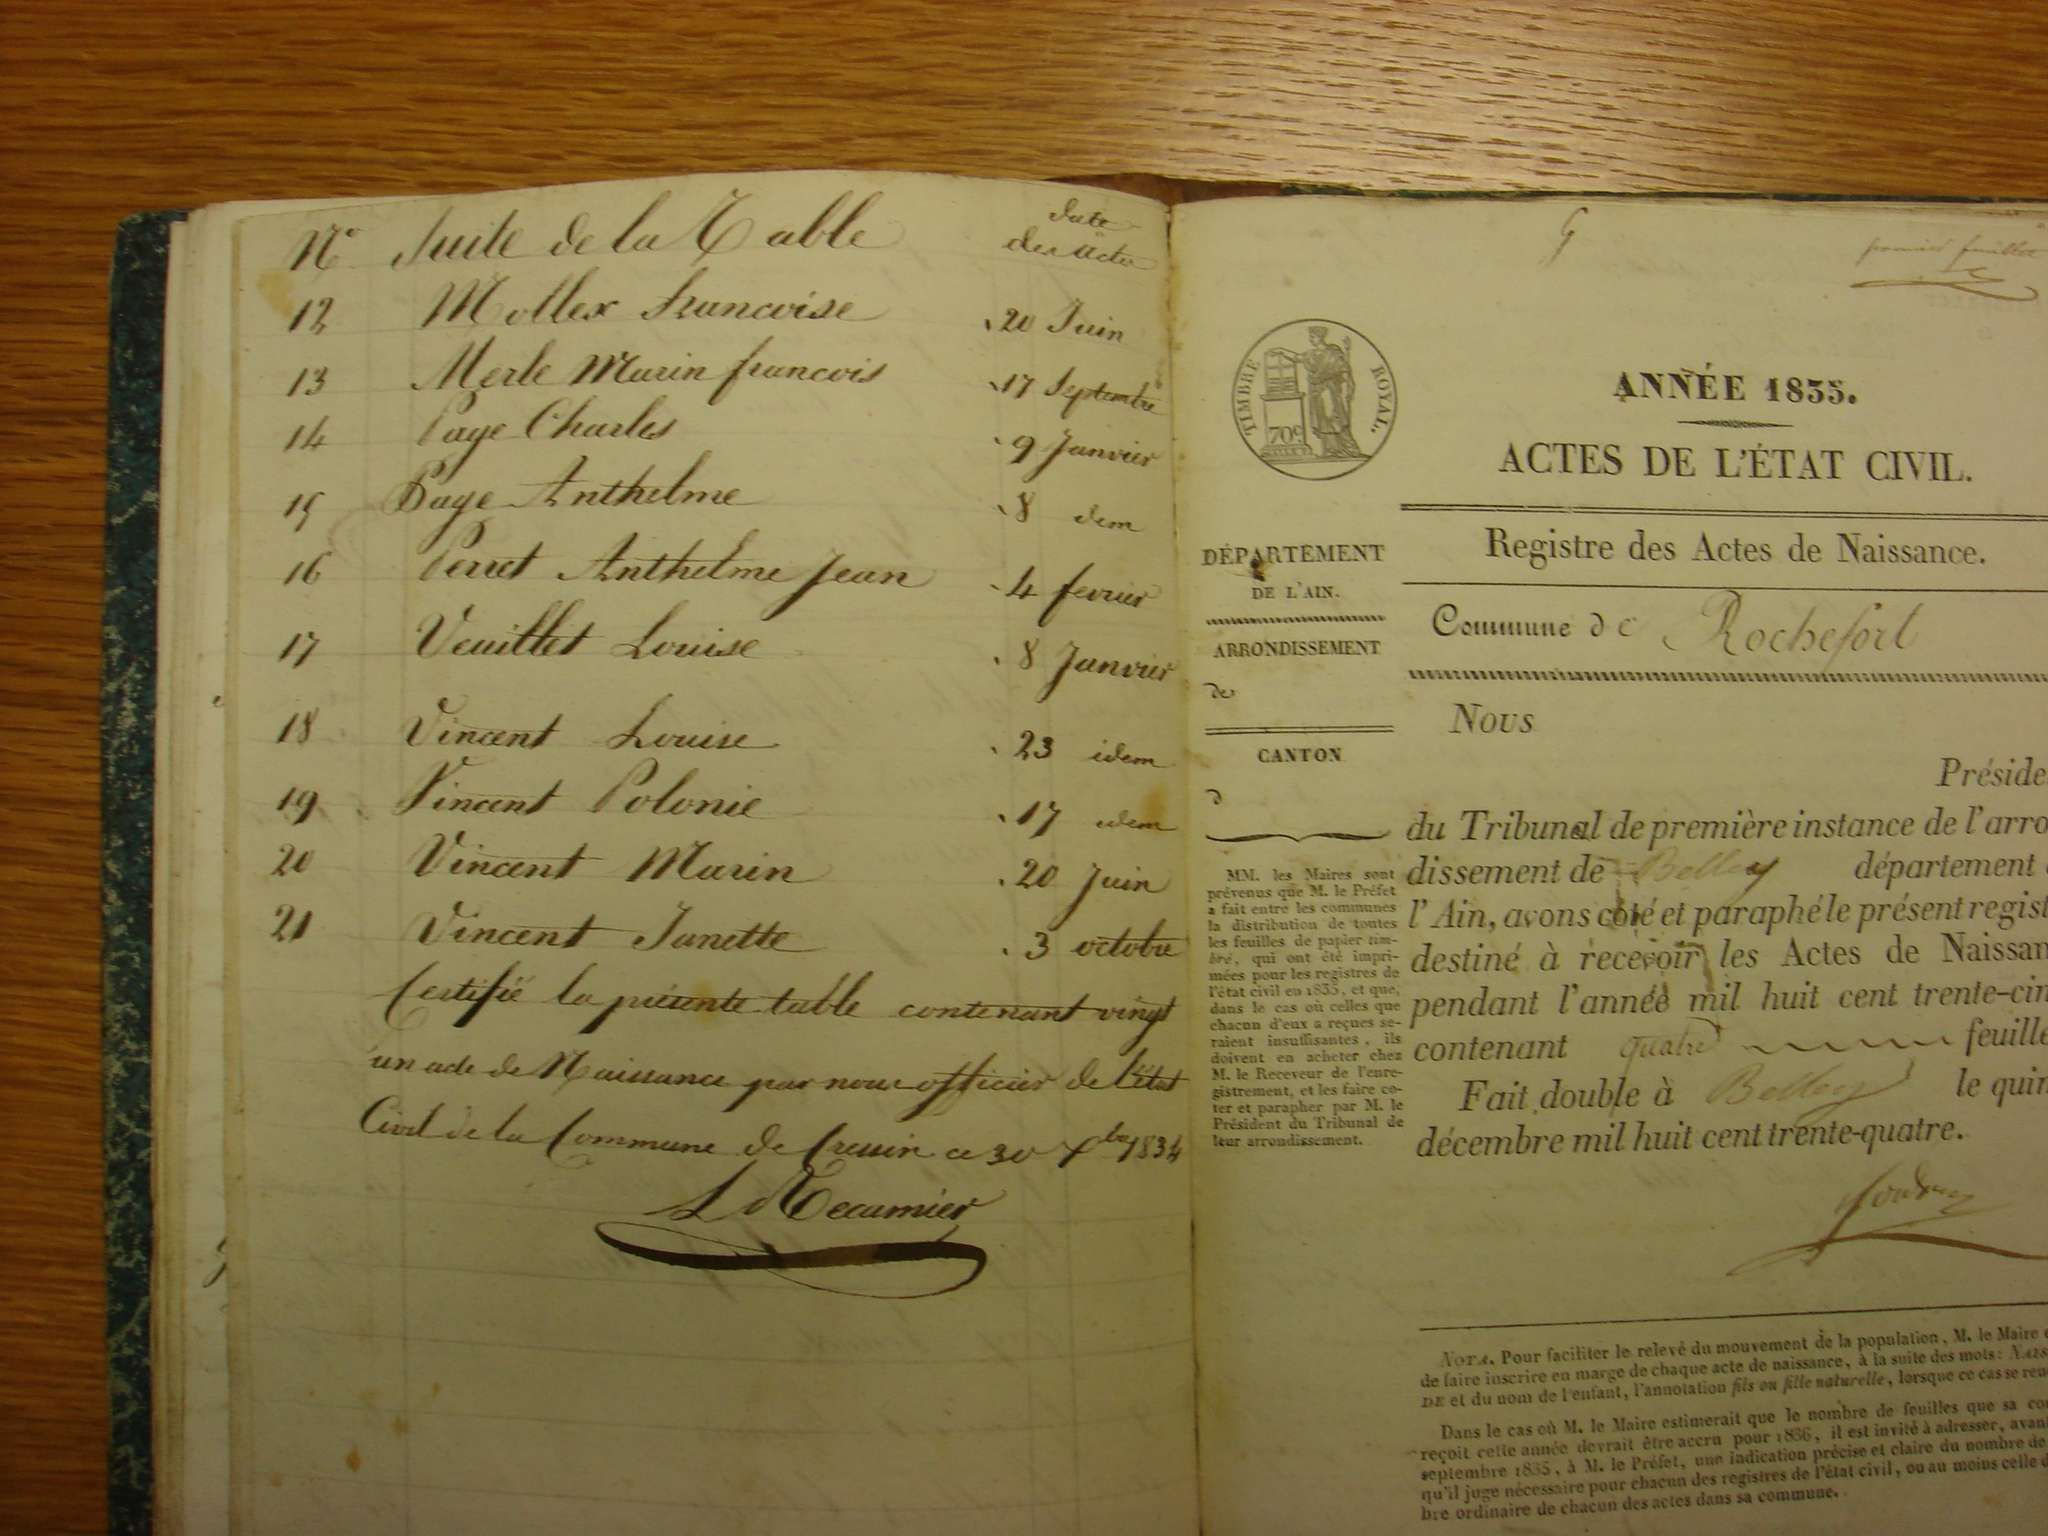 N° Suite de la Table date des actes
12 Mollex francoise 20 Juin
13 Merle Marin francois 17 Septembre
14 Page Charles 9 Janvier
15 Page Anthelme 8 dem
16 Perret Anthelme Jean 4 fevrier
17 Veuillet Louise 8 Janvier
18 Vincent Louise 23 idem
19 Vincent Polonie 17 idem
20 Vincent Marin 20 Juin
21 Vincent Janette 3 octobre
Certifié la présente table contenant vingt
un acte de Naissance par nous officier de l'état
Civil de la Commune de Cressin ce 30 Xbre 1834
premier feuillet
TIMBRE ROYAL.
70c
ANNÉE 1835.
ACTES DE L'ÉTAT CIVIL.
Registre des Actes de Naissance.
DÉPARTEMENT
DE L'AIN.
ARRONDISSEMENT
de
CANTON
d
MM. les Maires sont
prévenus que M. le Préfet
a fait entre les communes
la distribution de toutes
les feuilles de papier tim-
bré, qui ont été impri-
mées pour les registres de
l'état civil en 1835, et que,
dans le cas où celles que
chacun d'eux a reçues se-
raient insuffisantes, ils
doivent en acheter chez
M. le Receveur de l'enre-
gistrement, et les faire co-
ter et parapher par M. le
Président du Tribunal de
leur arrondissement.
Commune de Rochefort
Nous
Préside
du Tribunal de première instance de l'arro
dissement de Belley département
l'Ain, avons coté et paraphé le présent regist
destiné à recevoir les Actes de Naissan
pendant l'année mil huit cent trente-cin
contenant quatre feuille
Fait double à Belley le quin
décembre mil huit cent trente-quatre.
NOTA. Pour faciliter le relevé du mouvement de la population, M. le Maire
de faire inscrire en marge de chaque acte de naissance, à la suite des mots: NAIS
DE et du nom de l'enfant, l'annotation fils ou fille naturelle, lorsque ce cas se ren
Dans le cas où M. le Maire estimerait que le nombre de feuilles que sa co
reçoit cette année devrait être accru pour 1836, il est invité à adresser, avan
septembre 1835, à M. le Préfet, une indication précise et claire du nombre de
qu'il juge nécessaire pour chacun des registres de l'état civil, ou au moins celle d
bre ordinaire de chacun des actes dans sa commune.